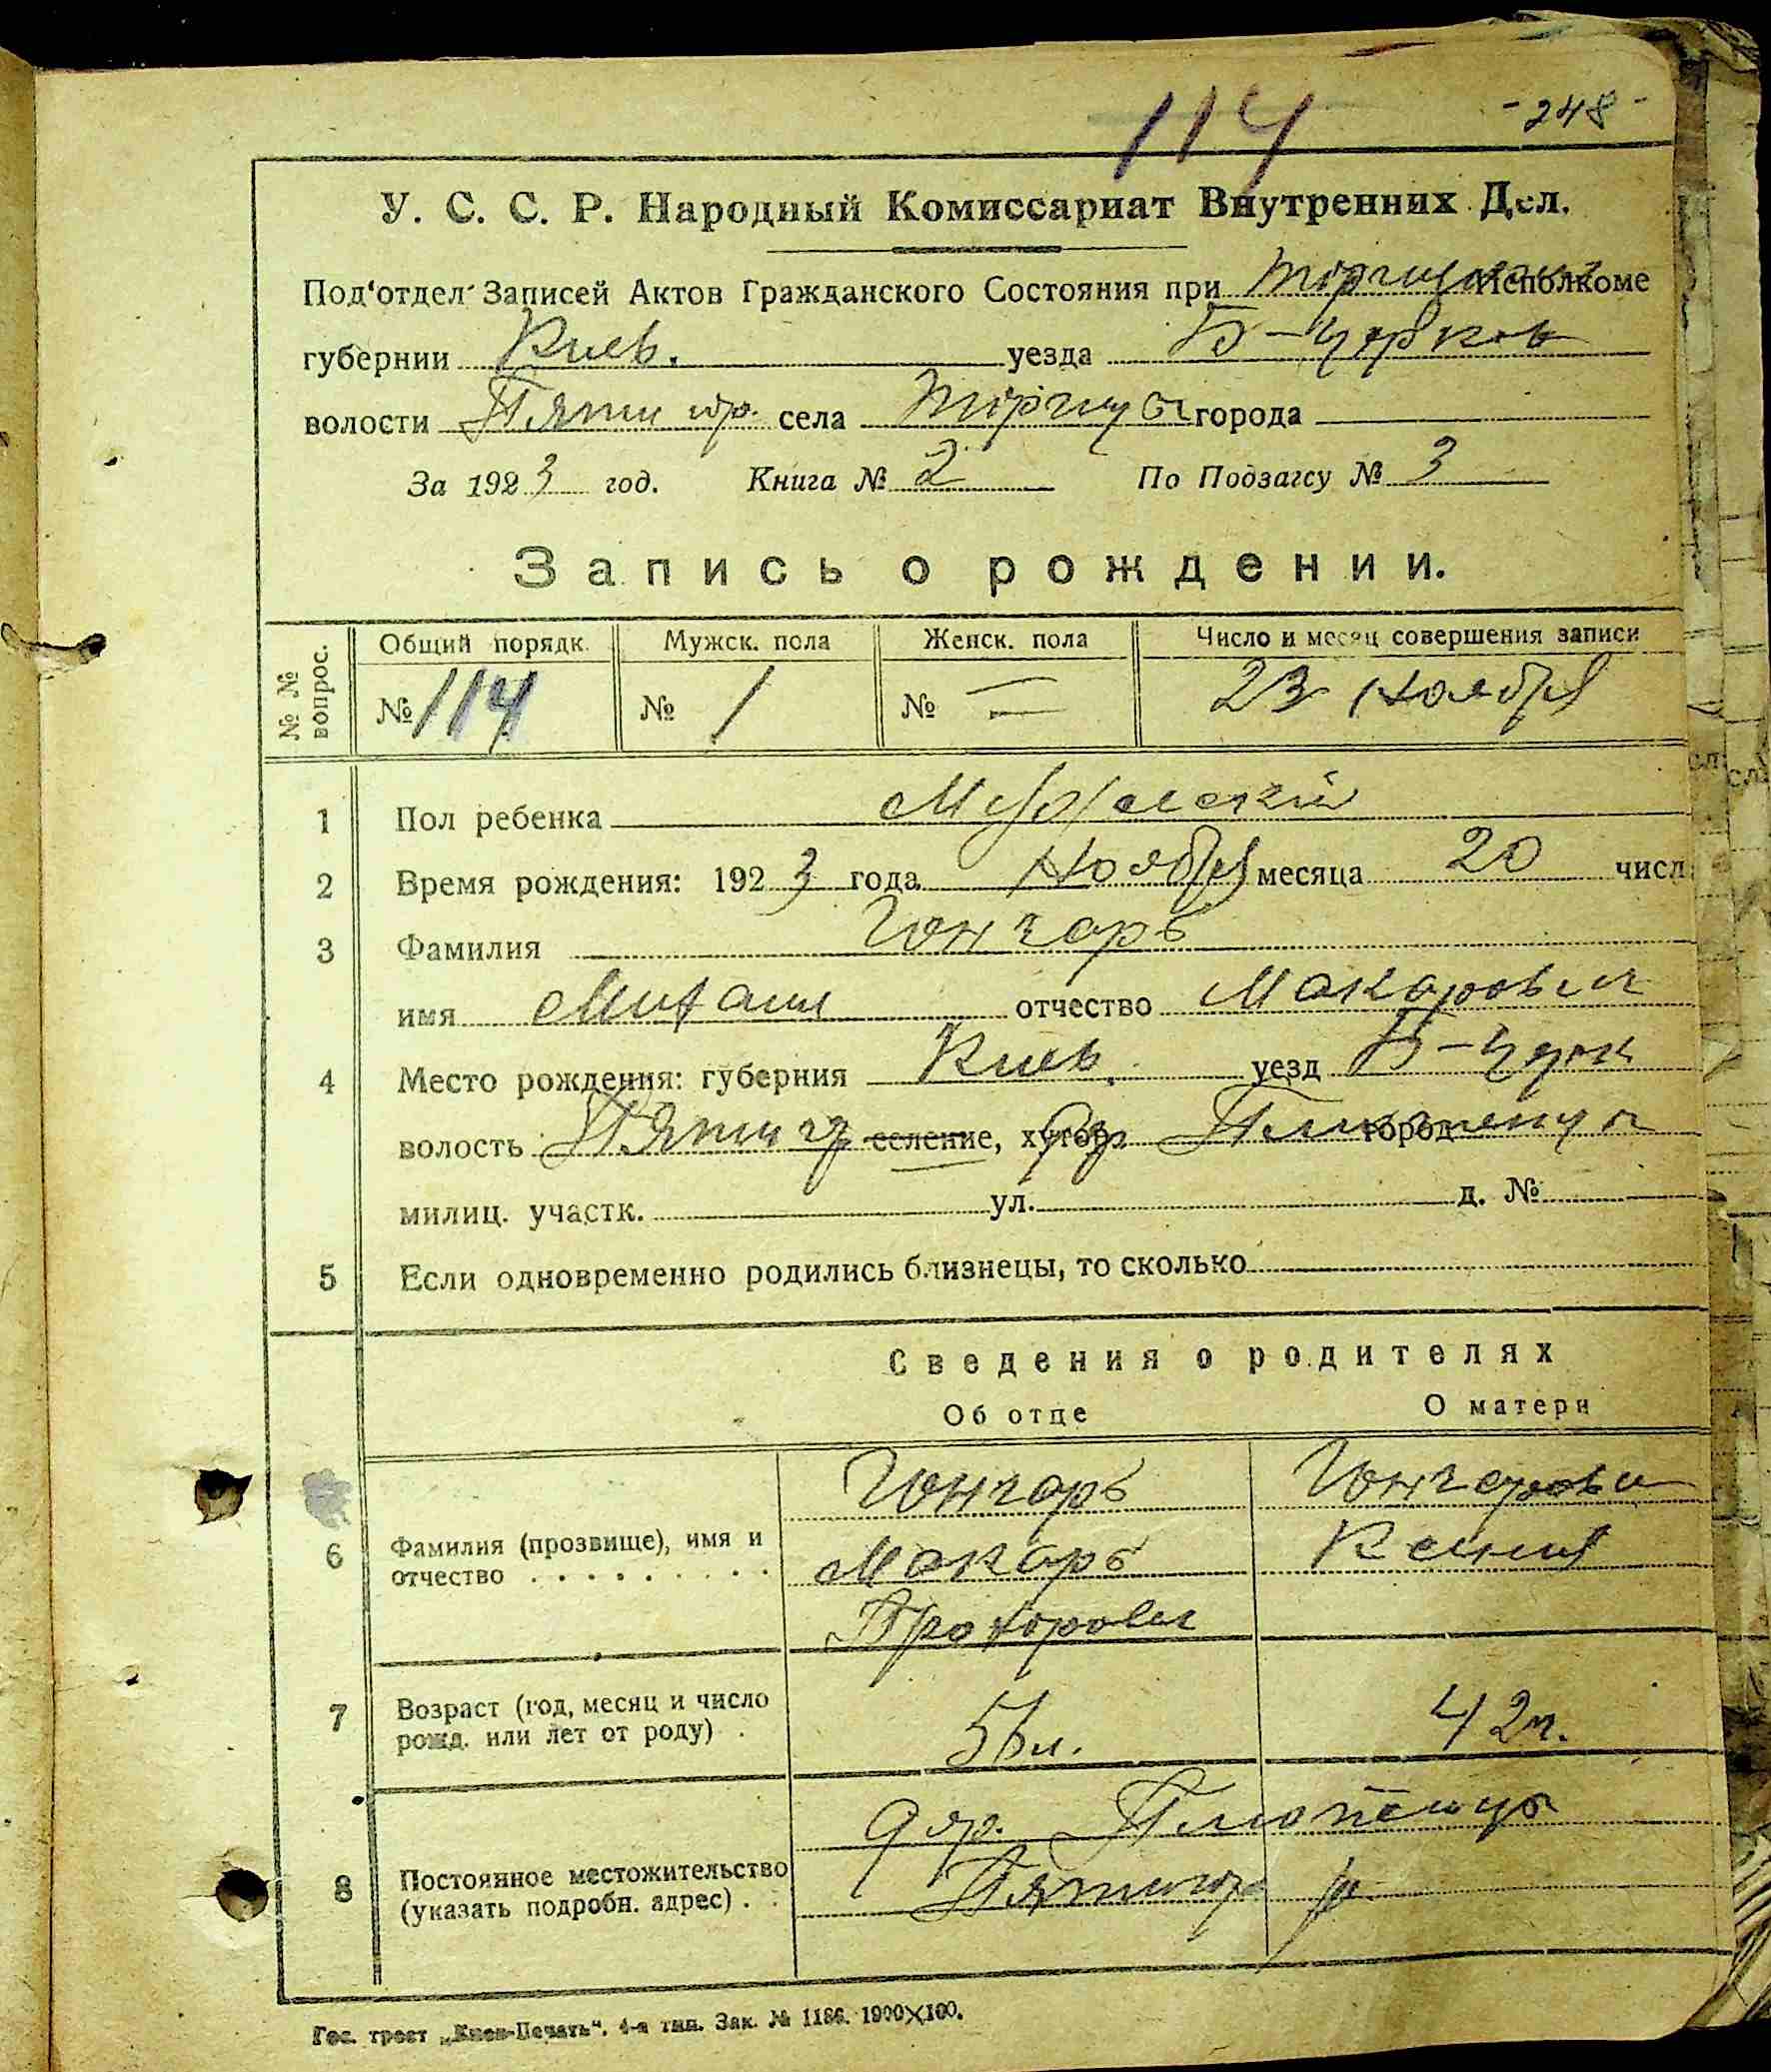 114
- 248 -
У. С. С. Р. Народный Комиссариат Внутренних Дел.
Под‘отдел Записей Актов Гражданского Состояния при Исполкоме
губернии Киев. уезда Б-Церков
волости Пятигор. села Торчицы города
За 1923 год. Книга № 2 По Подзагсу № 3
Запись о рождении.
№ № вопрос.
Общий порядк. Мужск. пола Женск. пола Число и месяц совершения записи
№ 114 № 1 № — 23 Ноября
1 Пол ребенка Мужеский
2 Время рождения: 1923 года Ноября месяца 20 числ
3 Фамилия Гончаръ
имя Михаил отчество Макарович
4 Место рождения: губерния Киев. уезд Б-Церк
волость Пятигор селение, хутор город
милиц. участк. ул. д. №
5 Если одновременно родились близнецы, то сколько
Сведения о родителях
Об отце О матери
Гончаръ Гончарова
6 Фамилия (прозвище), имя и отчество Макаръ Ксения
Прохорович
7 Возраст (год, месяц и число рожд. или лет от роду) 56 л. 42 л.
8 Постоянное местожительство (указать подробн. адрес)
дер.
Пятигор р.
Гос. трест „Киев-Печать“. 4-я тип. Зак. № 1186. 1900×100.